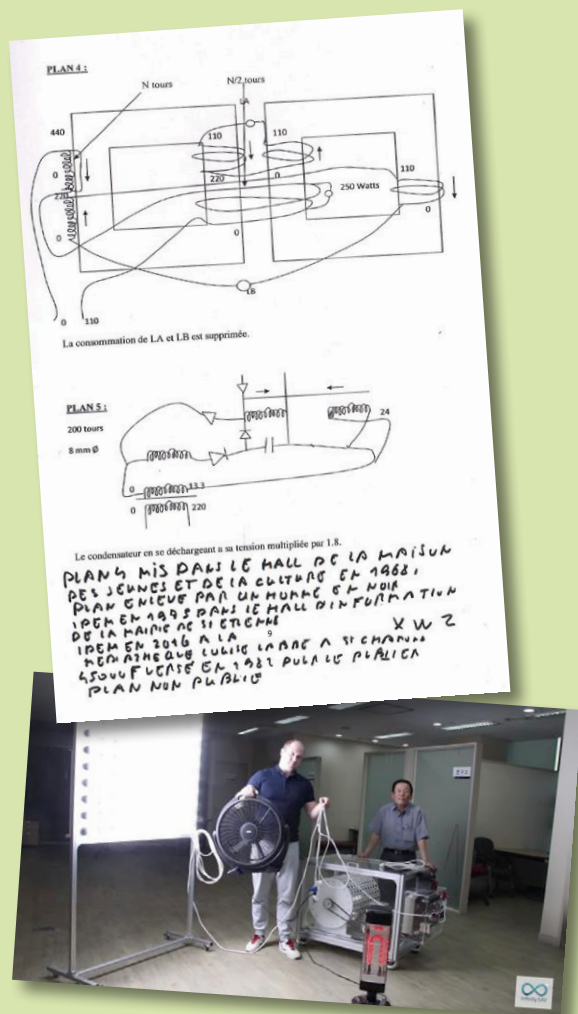 PLAN 4 :
N tours
N/2 tours
LA
440
110
110
0
220
0
110
22
250 Watts
0
0
0
LB
0 110
La consommation de LA et LB est supprimée.
PLAN 5 :
200 tours
8 mm Ø
24
0 13.3
0 220
Le condensateur en se déchargeant a sa tension multipliée par 1.8.
PLAN 4 MIS DANS LE HALL DE LA MAISON
DES JEUNES ET DE LA CULTURE EN 1968.
PLAN ENLEVE PAR UN HOMME EN NOIR
IDEM EN 1975 DANS LE HALL D'INFORMATION
DE LA MAIRIE DE ST ETIENNE
IDEM EN 2016 A LA
9
MEDIATHEQUE LOUISE LABBE A ST CHAMOND
45000 F VERSE EN 1982 POUR LE PUBLIER
PLAN NON PUBLIE
Infinity SAV